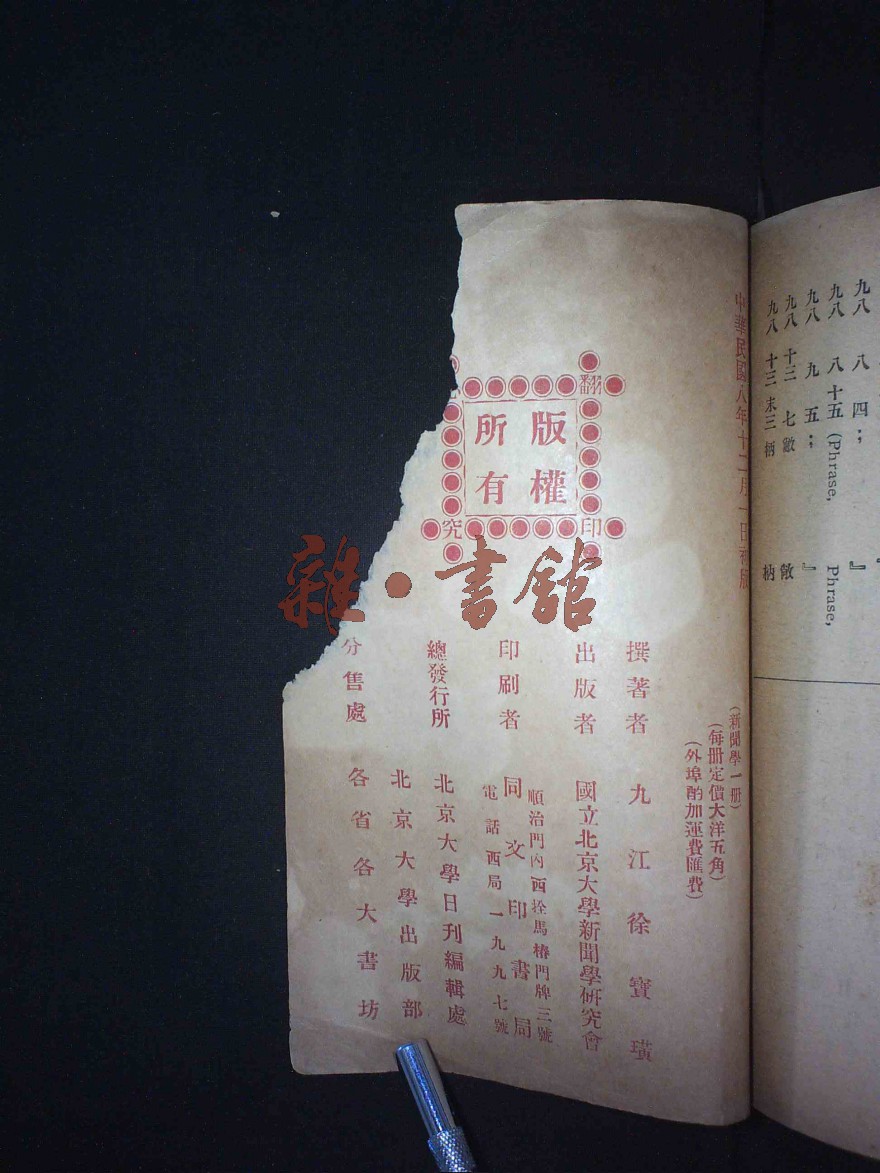 九八 八 四；
九八 八 十五 (Phrase, 』 Phrase,
九八 九 五； 』
九八 十二 七 敝 敞
九八 十三 末三 柄 枘
中華民國八年十二月一日初版
(新聞學一册)
(每册定價大洋五角)
(外埠酌加運費匯費)
版權
所有
翻印
究
撰著者 九江徐寶璜
出版者 國立北京大學新聞學研究會
印刷者 同文印書局
順治門內西拴馬樁門牌三號
電話西局一九九七號
總發行所 北京大學日刊編輯處
北京大學出版部
分售處 各省各大書坊
雜·書館